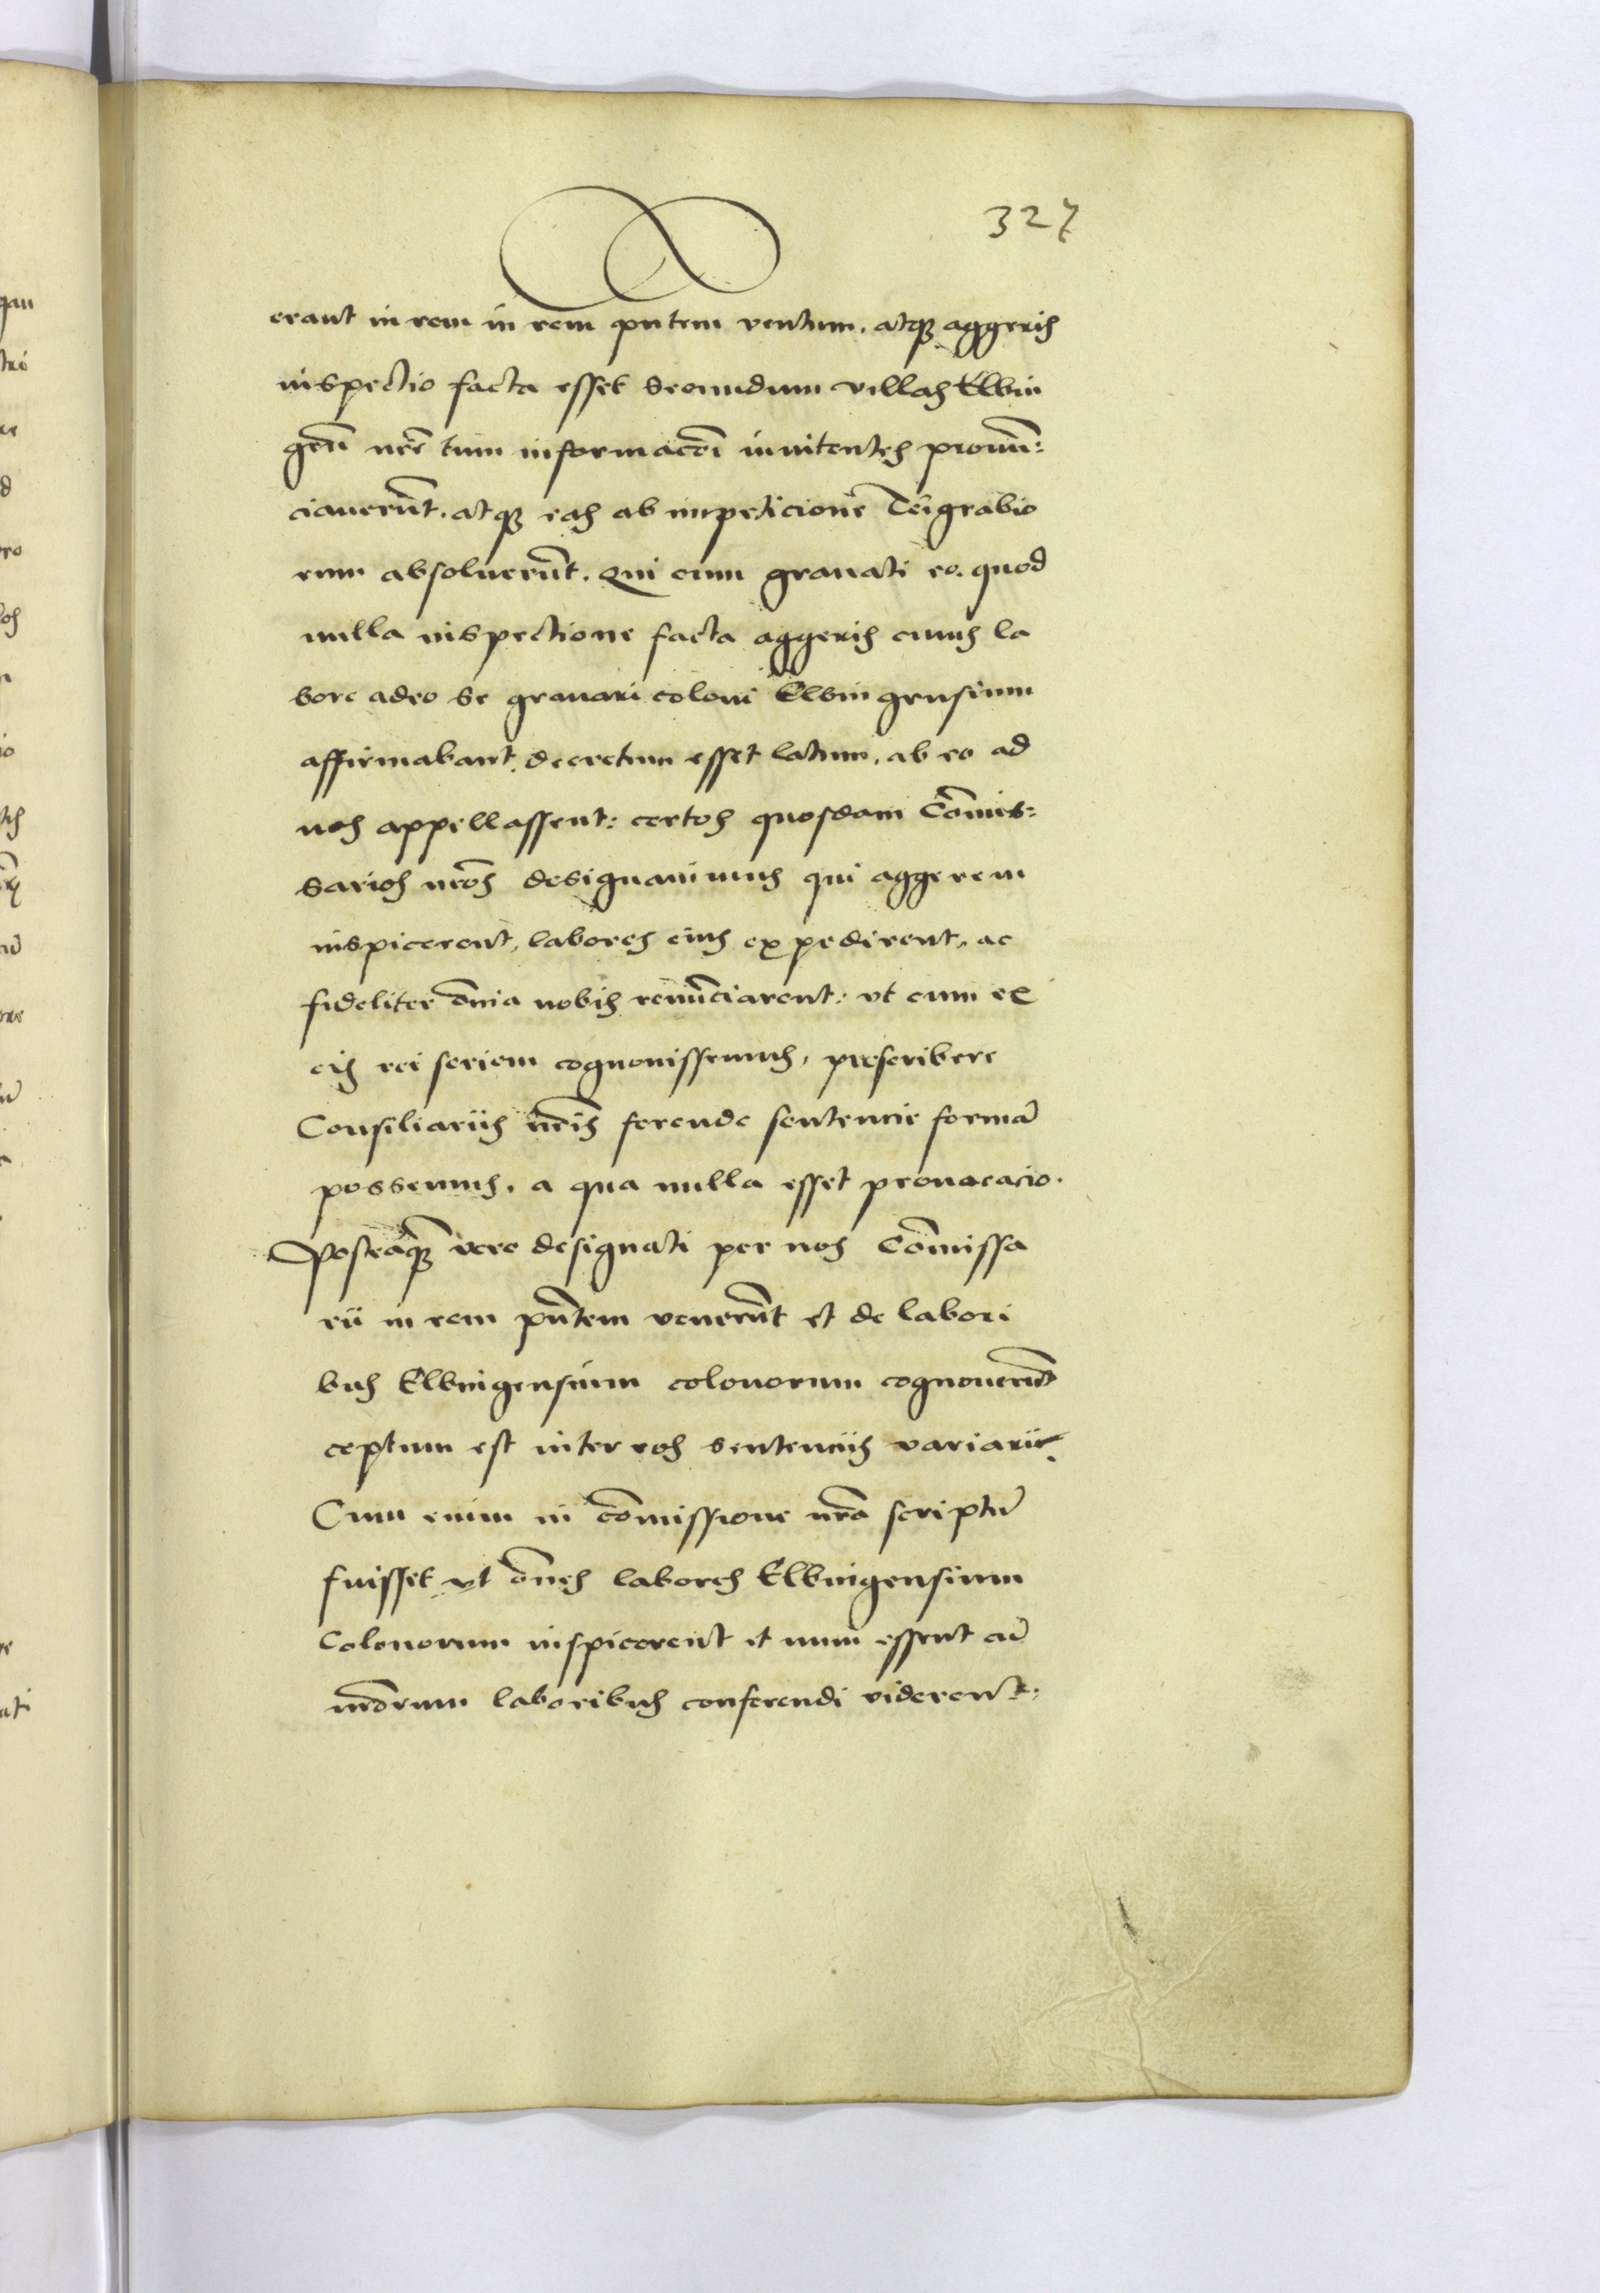 327
erant in rem in rem pntem ventum. atq aggeris
inspectio facta esset secundum villas Elbin
gen nre tum informacoi innitentes pronun:
ciaverunt. atq eas ab impeticione Teigrabio
rum absoluerunt. Qui cum gravati eo. quod
nulla inspectione facta aggeris cuius la
bore adeo se gravari coloni Elbingensium
affirmabant, decretum esset latum, ab eo ad
nos appellassent: certos quosdam Comis:
sarios nros designavimus qui aggerem
inspicerent, labores eius expedirent, ac
fideliter omia nobis renunciarent: vt cum ex
eis rei seriem cognovissemus, prescribere
Consiliariis nris ferende sentencie forma
possemus, a qua nulla esset provocacio.
Posteaq vero designati per nos Comissa
rii in rem pntem venerunt et de labori
bus Elbingensium colonorum cognoverunt
ceptum est inter eos sentenciis variari.
Cum enim in comissione nra scriptu
fuisset vt omes labores Elbingensium
Colonorum inspicerent et num essent cu
nrorum laboribus conferendi viderent: